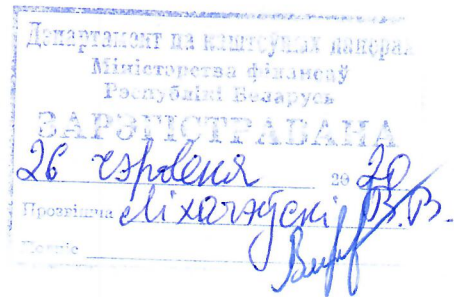 Дэпартамент па каштоўных паперах
Міністэрства фінансаў
Рэспублікі Беларусь
ЗАРЭГІСТРАВАНА
26 чэрвеня 2020
Прозвішча Ліхачэўскі В.В.
Подпіс